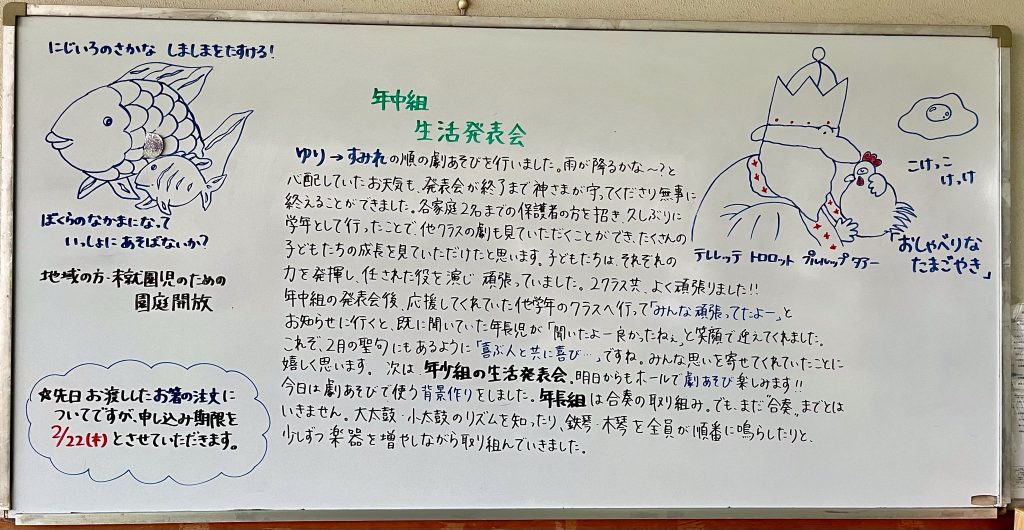 にじいろのさかな しましまをたすける!
ぼくらのなかまになって
いっしょにあそばないか?
地域の方・未就園児のための
園庭開放
☆先日お渡ししたお箸の注文に
ついてですが、申し込み期限を
2/22(木)とさせていただきます。
年中組
生活発表会
ゆり→すみれの順の劇あそびを行いました。雨が降るかな〜?と
心配していたお天気も、発表会が終了まで神さまが守ってくださり無事に
終えることができました。各家庭2名までの保護者の方を招き久しぶりに
学年として行ったことで、他クラスの劇も見ていただくことができ、たくさんの
子どもたちの成長を見ていただけたと思います。子どもたちは、それぞれの
力を発揮し、任された役を演じ 頑張っていました。2クラス共、よく頑張りました!!
年中組の発表会後、応援してくれていた他学年のクラスへ行って「みんな頑張ってたよー」と
お知らせに行くと、既に聞いていた年長児が「聞いたよー良かったねぇ」と笑顔で迎えてくれました。
これぞ、2月の聖句にもあるように「喜ぶ人と共に喜び…」ですね。みんな思いを寄せてくれていたことに
嬉しく思います。 次は 年少組の生活発表会。明日からもホールで劇あそび楽しみます!!
今日は劇あそびで使う背景作りをしました。年長組は合奏の取り組み。でも、まだ"合奏"までとは
いきません。大太鼓・小太鼓のリズムを知ったり、鉄琴・木琴を全員が順番に鳴らしたりと、
少しずつ楽器を増やしながら取り組んでいきました。
こけっこ
けっけ
テレレッテ トロロット プルルップ タター
「おしゃべりな
たまごやき」